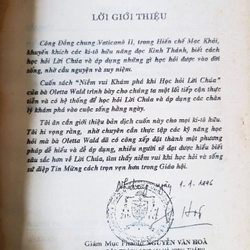 LỜI GIỚI THIỆU
Công Đồng chung Vaticanô II, trong Hiến Chế Mạc Khải,
khuyến khích các ki-tô hữu năng đọc Kinh Thánh, biết cách
học hỏi Lời Chúa và áp dụng những gì học hỏi được vào đời
sống, nhờ cầu nguyện và suy niệm.
Cuốn sách "Niềm vui Khám phá khi Học hỏi Lời Chúa"
của bà Oletta Wald trình bày cho chúng ta một lối tiếp cận thực
tiễn và có hệ thống để học hỏi Lời Chúa và áp dụng các chân
lý khám phá vào cuộc sống hằng ngày.
Tôi ân cần giới thiệu bản dịch cuốn này cho mọi ki-tô hữu.
Tôi hi vọng rằng, nhờ chuyên cần thực tập các kỹ năng học
hỏi mà bà Oletta Wald đã có công xếp đặt thành một phương
pháp dễ hiểu và dễ áp dụng, nhiều người sẽ đạt được hiểu biết
sâu sắc hơn về Lời Chúa, tìm thấy niềm vui khi học hỏi và sống
sứ điệp Tin Mừng cách trọn vẹn hơn trong Giáo hội.
Giám Mục Phaolô NGUYỄN VĂN HOÀ